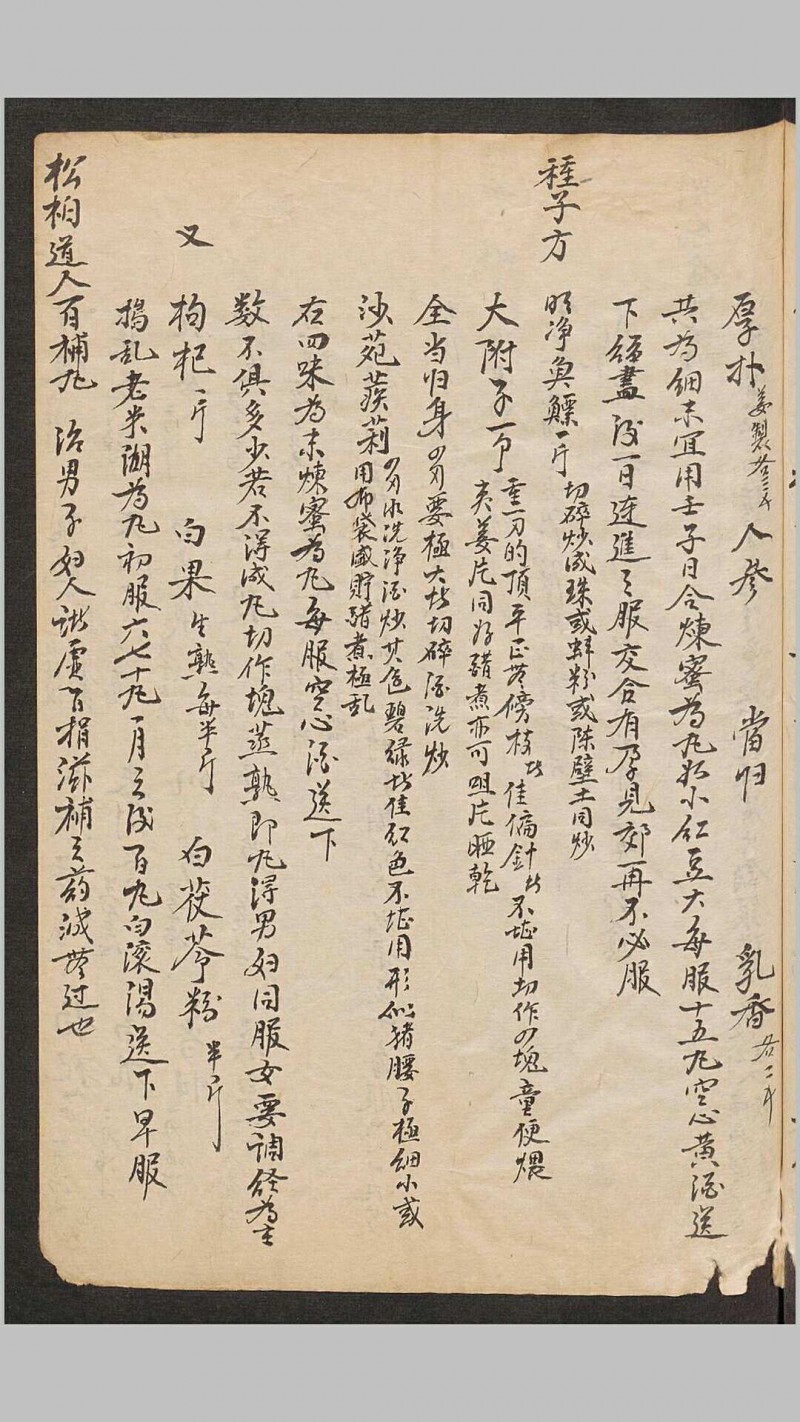 厚朴姜製各三錢 人參 當归 乳香各二錢
共為細末宜用壬子日合煉蜜為丸如小紅豆大每服十五丸空心黃酒送
下經盡後一日連進三服交合有孕見效再不必服
種子方
明净魚鰾一斤切碎炒成珠或蚌粉或陳壁土同炒
大附子一个重一刄的頂平正無傍枝者佳偏針者不堪用切作四塊童便煨
夾姜片同好醋煮亦可咀片晒乾
全当归身四刄要極大者切碎酒洗炒
沙苑蒺莉四刄水洗净酒炒其色碧綠者佳紅色不堪用形似猪腰子極細小或
用布袋盛貯醋煮極乱
右四味為末煉蜜為丸每服空心酒送下
数不俱多少若不得成丸切作塊蒸熟即丸得男妇同服女要調經為主
又 枸杞一斤 白果生熟每半斤 白茯苓粉半斤
搗乱老米湖為丸初服六七十丸一月之後百丸白滚湯送下早服
松柏道人百補丸 治男子妇人諸虛百損滋補之药誠無过也